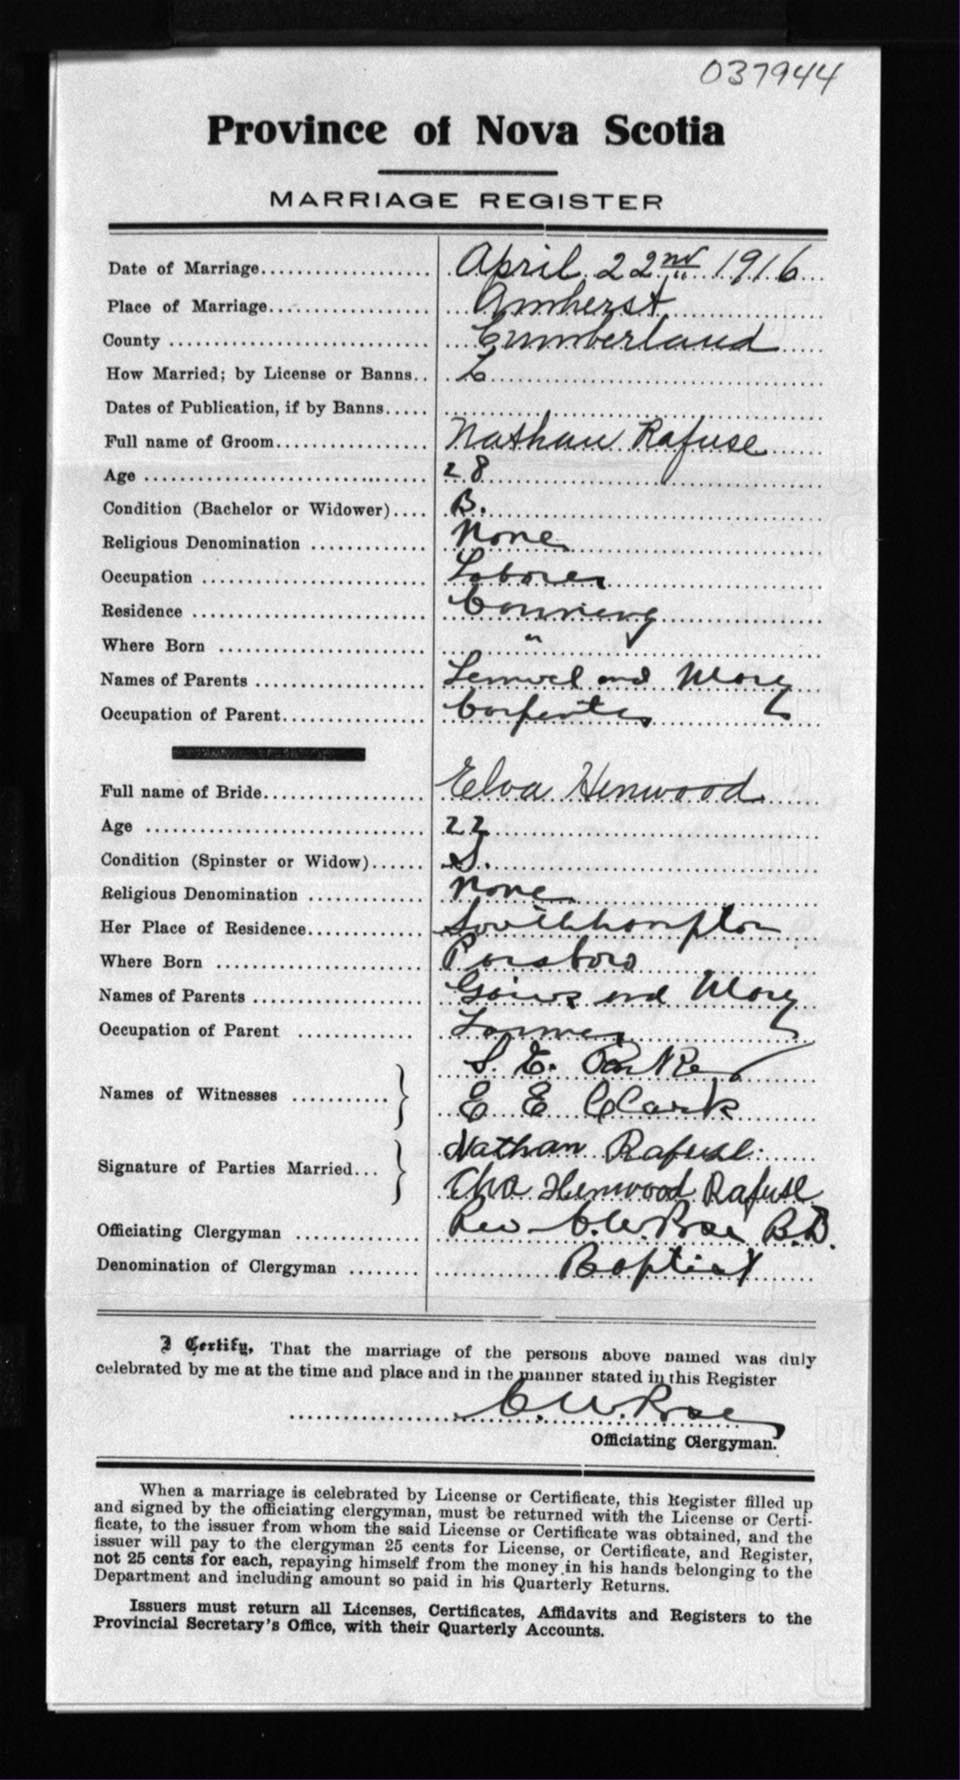 037944
Province of Nova Scotia
MARRIAGE REGISTER
Date of Marriage................... April 22nd 1916
Place of Marriage.................. Amherst
County .............................. Cumberland
How Married; by License or Banns.. L
Dates of Publication, if by Banns.....
Full name of Groom................. Nathan Rafuse
Age ................................ 28
Condition (Bachelor or Widower).... B.
Religious Denomination ............. None
Occupation .......................... Laborer
Residence ........................... Conning
Where Born ........................ "
Names of Parents .................... Lemuel and Mary
Occupation of Parent................. Carpenter
Full name of Bride................... Elva Henwood
Age ................................ 22
Condition (Spinster or Widow)...... S.
Religious Denomination ............. None
Her Place of Residence............. Southhampton
Where Born ........................ Parsboro
Names of Parents .................... and Mary
Occupation of Parent ............. Farmer
Names of Witnesses ........... } S. E. Parker
E E Clark
Signature of Parties Married... } Nathan Rafuse
Elva Henwood Rafuse
Officiating Clergyman ............. Rev C. W. Rose B.D.
Denomination of Clergyman ........ Baptist
I Certify, That the marriage of the persons above named was duly
celebrated by me at the time and place and in the manner stated in this Register
C. W. Rose
Officiating Clergyman.
When a marriage is celebrated by License or Certificate, this Register filled up
and signed by the officiating clergyman, must be returned with the License or Certi-
ficate, to the issuer from whom the said License or Certificate was obtained, and the
issuer will pay to the clergyman 25 cents for License, or Certificate, and Register,
not 25 cents for each, repaying himself from the money in his hands belonging to the
Department and including amount so paid in his Quarterly Returns.
Issuers must return all Licenses, Certificates, Affidavits and Registers to the
Provincial Secretary's Office, with their Quarterly Accounts.